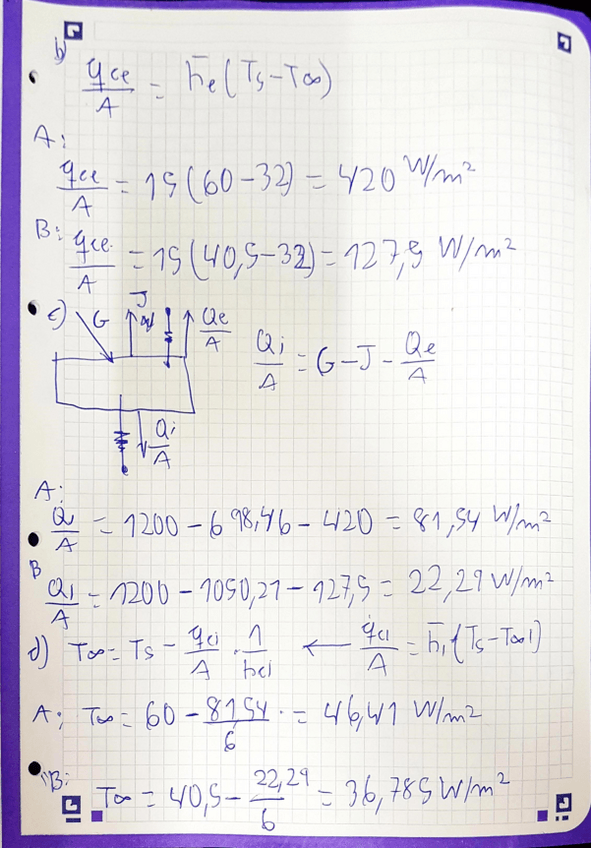 b)
qce/A = h̄e (Ts - T∞)
A:
qce/A = 15 (60 - 32) = 420 W/m²
B: qce/A = 15 (40,5 - 32) = 127,5 W/m²
c) G J Qe/A
Qi/A
Qi/A = G - J - Qe/A
A:
Qi/A = 1200 - 698,46 - 420 = 81,54 W/m²
B
Qi/A = 1200 - 1050,21 - 127,5 = 22,29 W/m²
d) T∞ = Ts - qci/A · 1/hci ← qci/A = h̄i (Ts - T∞i)
A: T∞ = 60 - 81,54/6 · = 46,41 W/m²
B:
T∞ = 40,5 - 22,29/6 = 36,785 W/m²